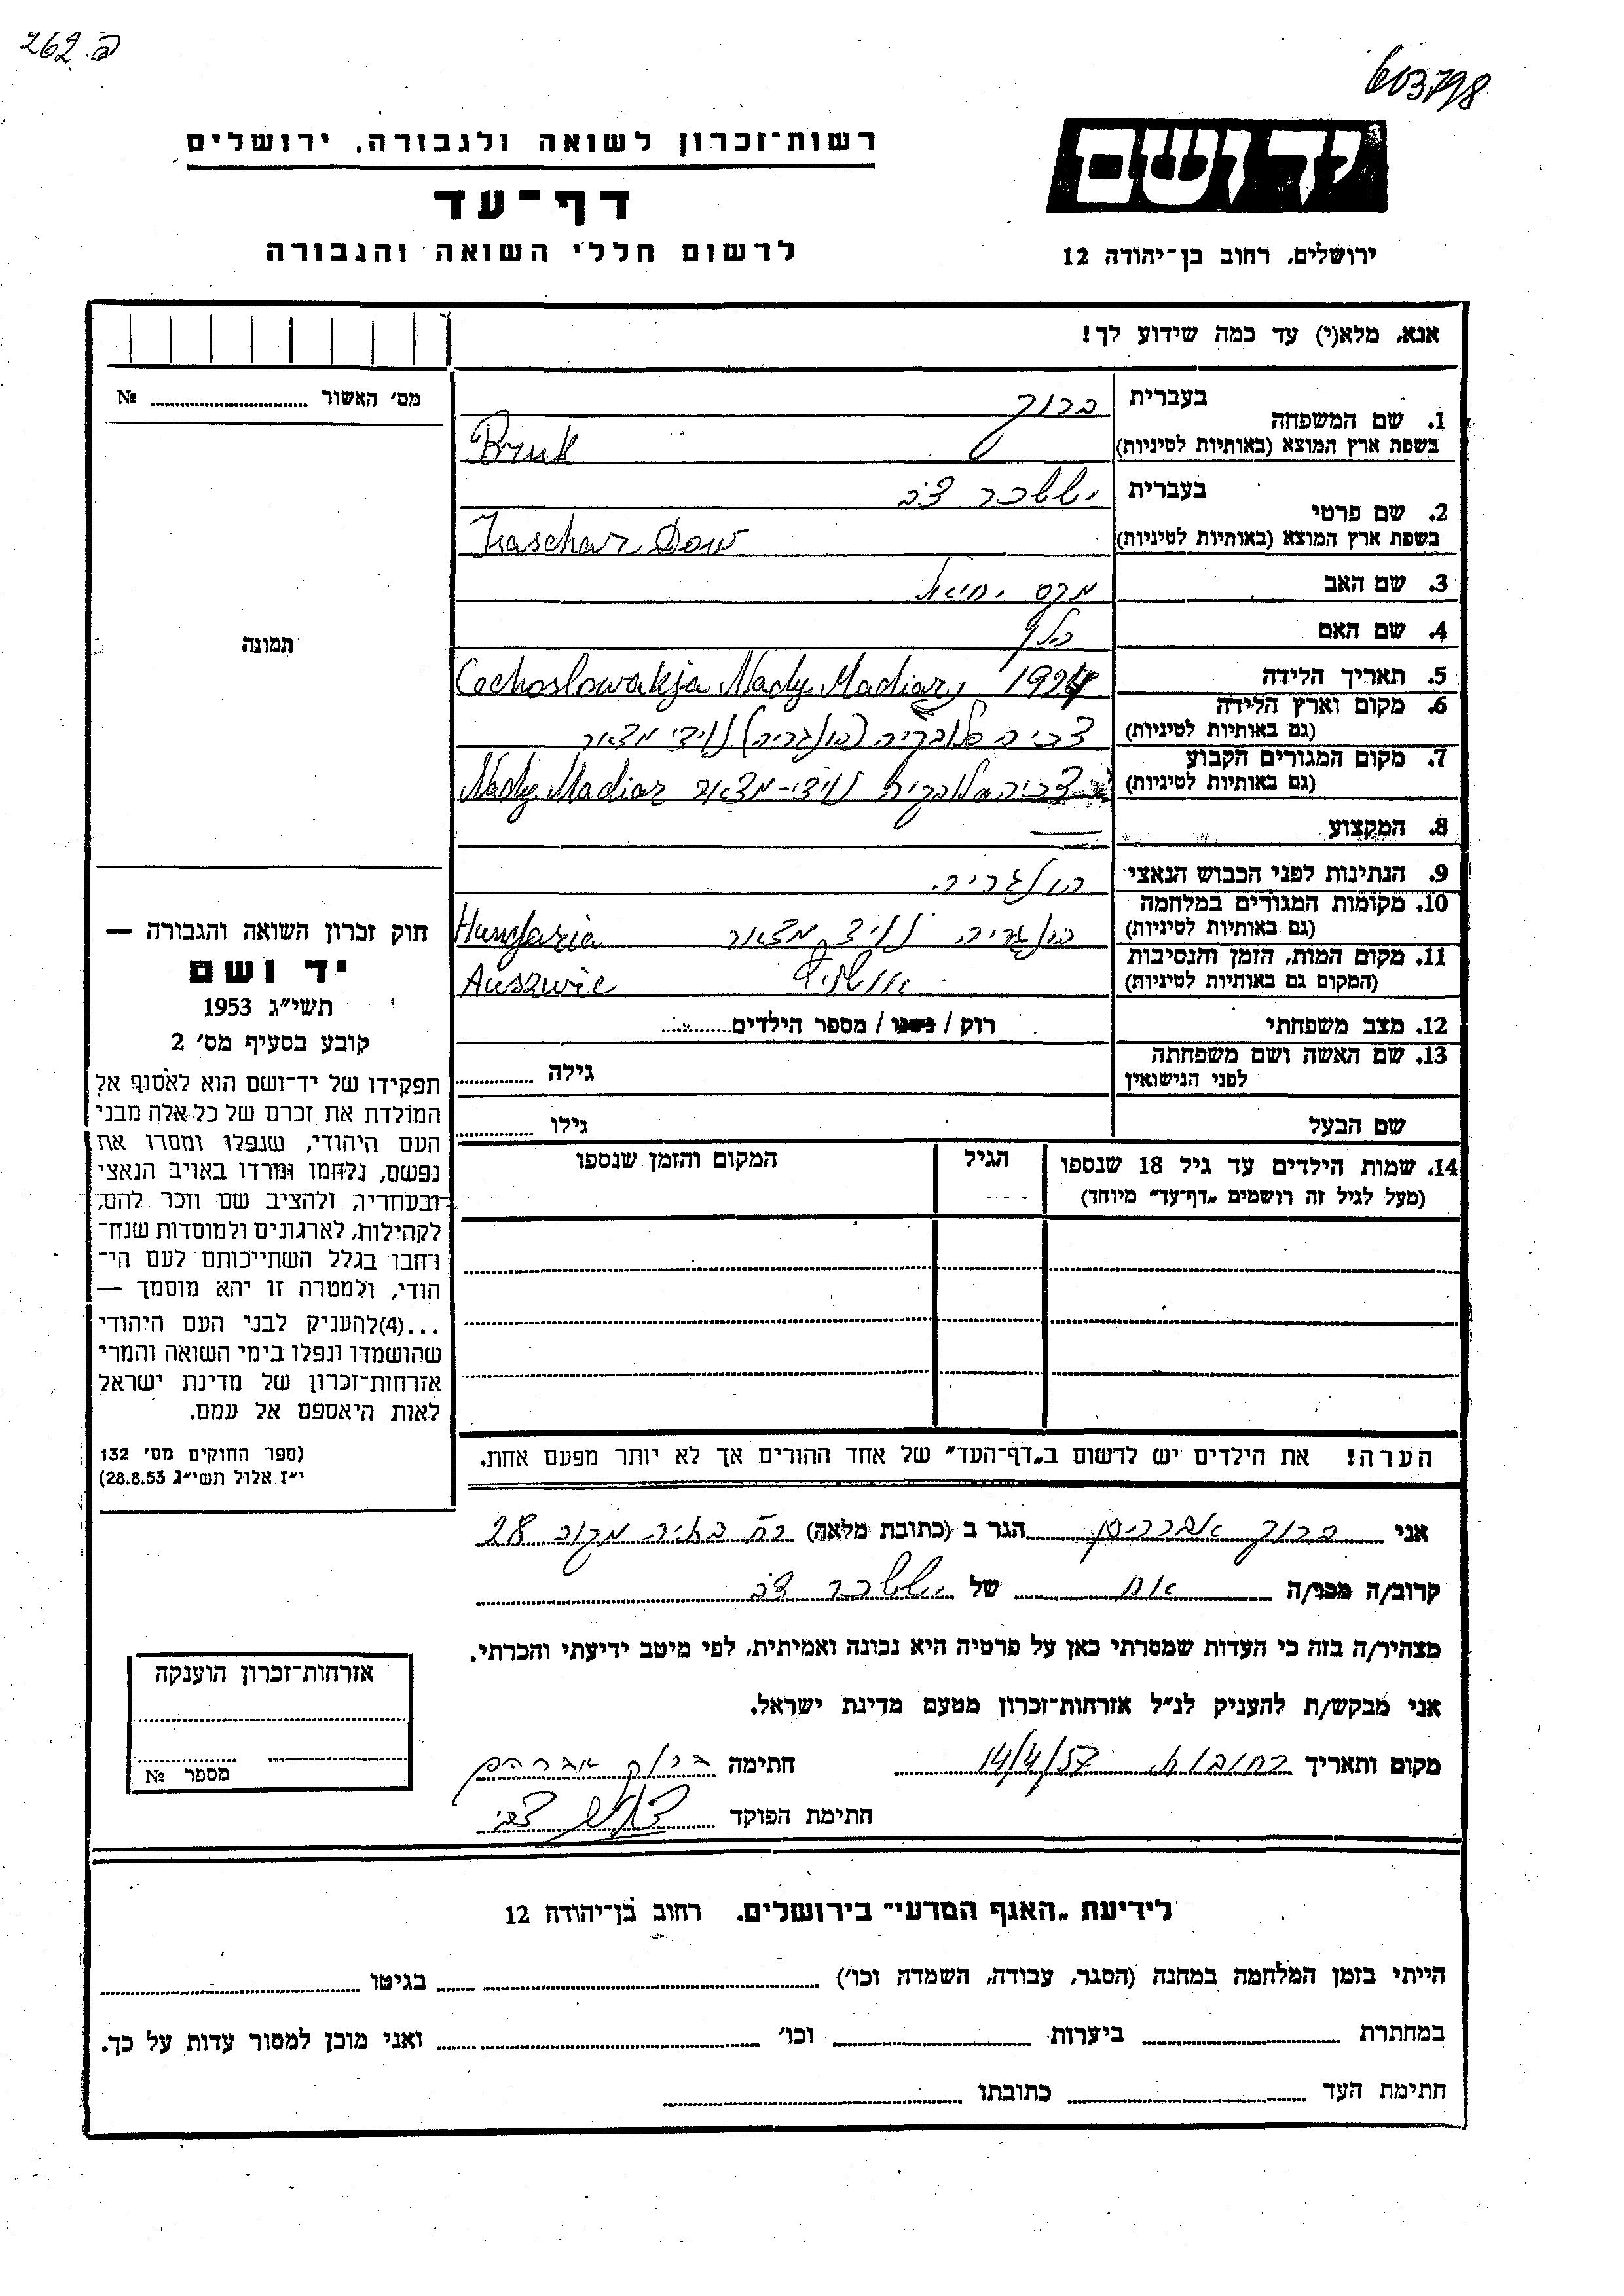 262.ב
603798
רשות־זכרון לשואה ולגבורה, ירושלים
דף־עד
לרשום חללי השואה והגבורה
יד ושם
ירושלים, רחוב בן־יהודה 12
אנא, מלא(י) עד כמה שידוע לך!
מס׳ האשור № 
1. שם המשפחה
בעברית ברוך
בשפת ארץ המוצא (באותיות לטיניות) Bruk
2. שם פרטי
בעברית יששכר דב
בשפת ארץ המוצא (באותיות לטיניות) Izaschar Dow
3. שם האב יחיאל
4. שם האם
5. תאריך הלידה 1924
6. מקום וארץ הלידה Cechoslowakja Nady Madiar
(גם באותיות לטיניות) (הונגריה)
7. מקום המגורים הקבוע
(גם באותיות לטיניות) Nady Madiar
8. המקצוע
9. הנתינות לפני הכבוש הנאצי הונגריה
10. מקומות המגורים במלחמה
(גם באותיות לטיניות) הונגריה Hungaria
11. מקום המות, הזמן והנסיבות
(המקום גם באותיות לטיניות) Auszwic
12. מצב משפחתי רוק / נשוי / מספר הילדים
13. שם האשה ושם משפחתה
לפני הנישואין גילה
שם הבעל גילו
14. שמות הילדים עד גיל 18 שנספו הגיל המקום והזמן שנספו
(מעל לגיל זה רושמים „דף־עד״ מיוחד)
תמונה
חוק זכרון השואה והגבורה —
יד ושם
תשי״ג 1953
קובע בסעיף מס׳ 2
תפקידו של יד־ושם הוא לאסוף אל
המולדת את זכרם של כל אלה מבני
העם היהודי, שנפלו ומסרו את
נפשם, נלחמו ומרדו באויב הנאצי
ובעוזריו, ולהציב שם וזכר להם,
לקהילות, לארגונים ולמוסדות שנח־
רבו בגלל השתייכותם לעם הי־
הודי, ולמטרה זו יהא מוסמך —
...(4)להעניק לבני העם היהודי
שהושמדו ונפלו בימי השואה והמרי
אזרחות־זכרון של מדינת ישראל
לאות היאספם אל עמם.
(ספר החוקים מס׳ 132
י״ז אלול תשי״ג 28.8.53)
הערה! את הילדים יש לרשום ב„דף־העד״ של אחד ההורים אך לא יותר מפעם אחת.
אני ברוך אברהם הגר ב (כתובת מלאה) 28
קרוב/ה מכר/ה אח של יששכר דב
מצהיר/ה בזה כי העדות שמסרתי כאן על פרטיה היא נכונה ואמיתית, לפי מיטב ידיעתי והכרתי.
אני מבקש/ת להעניק לנ״ל אזרחות־זכרון מטעם מדינת ישראל.
מקום ותאריך רחובות 14/4/57 חתימה ברוך אברהם
חתימת הפוקד
אזרחות־זכרון הוענקה
מספר №
לידיעת „האגף המדעי״ בירושלים. רחוב בן־יהודה 12
הייתי בזמן המלחמה במחנה (הסגר, עבודה, השמדה וכו׳) בגיטו
במחתרת ביערות וכו׳ ואני מוכן למסור עדות על כך.
חתימת העד כתובתו